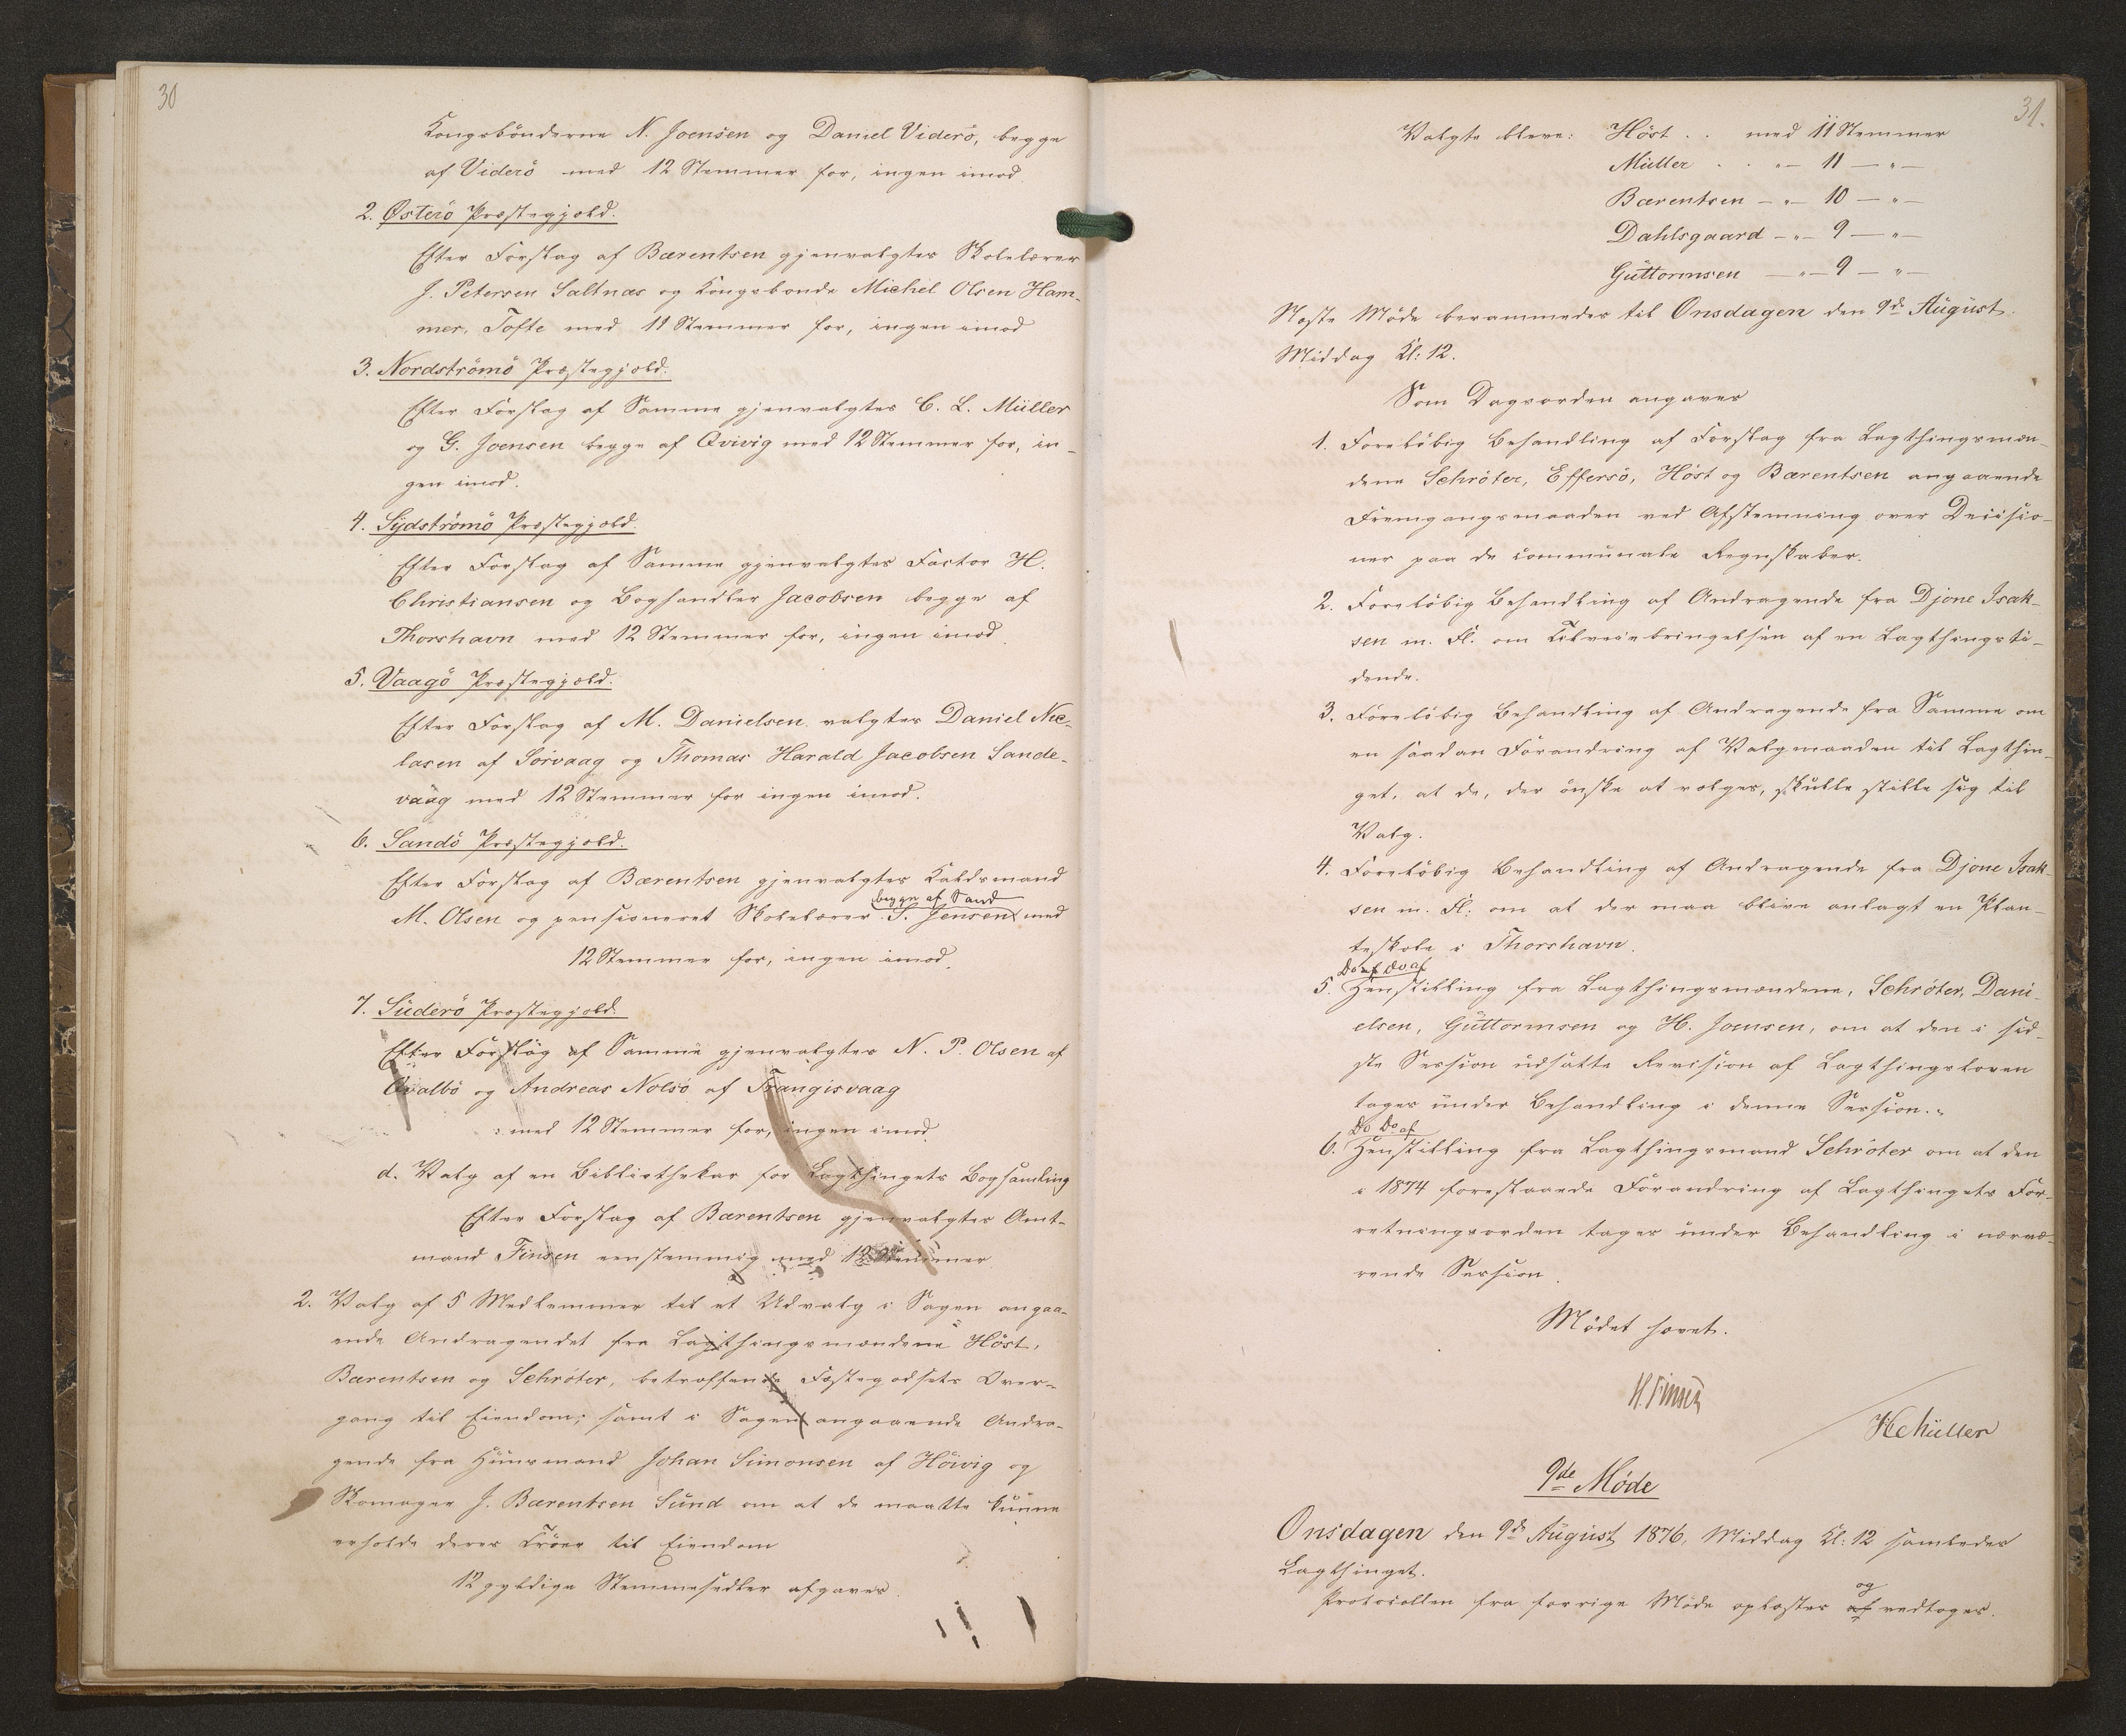 30
Kongsbönderne N. Joensen og Daniel Viderö, begge
af Viderö med 12 Stemmer for, ingen imod.
2. Østerö Præstegjæld.
Efter Forslag af Bærentsen gjenvalgtes Skolelærer
J. Petersen Saltnæs og Kongsbonde Michel Olsen Ham-
mer, Tofte med 11 Stemmer for, ingen imod
3. Nordströmö Præstegjæld.
Efter Forslag af Samme gjenvalgtes C. L. Müller
og G. Joensen begge af Qvivig med 12 Stemmer for, in-
gen imod.
4. Sydströmö Præstegjæld.
Efter Forslag af Samme gjenvalgtes Factor H.
Christiansen og Boghandler Jacobsen begge af
Thorshavn med 12 Stemmer for, ingen imod.
5. Vaagö Præstegjæld.
Efter Forslag af M. Danielsen valgtes Daniel Nic-
lasen af Sörvaag og Thomas Harald Jacobsen Sande-
vaag med 12 Stemmer for ingen imod.
6. Sandö Præstegjæld.
Efter Forslag af Bærentsen gjenvalgtes Kaldsmand
begge af Sand
M. Olsen og pensioneret Skolelærer S. Jensen med
12 Stemmer for, ingen imod.
7. Süderö Præstegjæld.
Efter Forslag af Samme gjenvalgtes N. P. Olsen af
Qvalbö og Andreas Nolsö af Trangisvaag
med 12 Stemmer for, ingen imod.
d. Valg af en Bibliothekar for Lagthingets Bogsamling
Efter Forslag af Bærentsen gjenvalgtes Amt-
mand Finsen eenstemmig med 12 Stemmer
2. Valg af 5 Medlemmer til et Udvalg i Sagen angaa-
ende Andragendet fra Lagthingsmændene Höst,
Bærentsen og Schröter, betræffende Fæstegodsets Over-
gang til Eiendom; samt i Sagen angaaende Andra-
gende fra Huusmand Johan Simonsen af Höivig og
Skomager J. Bærentsen Sund om at de maatte kunne
erholde deres Tröer til Eiendom
12 gyldige Stemmesedler afgaves.
31.
Valgte bleve: Höst . . med 11 Stemmer
Müller . . " — 11 — " —
Bærentsen — " — 10 — " —
Dahlsgaard — " — 9 — " —
Guttormsen — " — 9 — " —
Næste Möde berammedes til Onsdagen den 9de August.
Middag Kl: 12.
Som Dagsorden angaves
1. Forelöbig Behandling af Forslag fra Lagthingsmæn-
dene Schröter, Effersö, Höst og Bærentsen angaaende
Fremgangsmaaden ved Afstemning over Decisio-
ner paa de communale Regnskaber.
2. Forelöbig Behandling af Andragende fra Djone Isak-
sen m. Fl. om Tilveiebringelsen af en Lagthingsti-
dende.
3. Forelöbig Behandling af Andragende fra Samme om
en saadan Forandring af Valgmaaden til Lagthin-
get, at de, der önske at vælges, skulle stille sig til
Valg.
4. Forelöbig Behandling af Andragende fra Djone Isak-
sen m. Fl: om at der maa blive anlagt en Plan-
teskole i Thorshavn.
Do Do af
5. Henstilling fra Lagthingsmændene, Schröter, Dani-
elsen, Guttormsen og H. Joensen, om at den i sid-
ste Session udsatte Revision af Lagthingsloven
tages under Behandling i denne Session.
Do Do af
6. Henstilling fra Lagthingsmand Schröter om at den
i 1874 foreslaaede Forandring af Lagthingets For-
retningsorden tages under Behandling i nærvæ-
rende Session.
Mödet hævet.
H. Finsen
HC Müller
9de Möde
Onsdagen den 9de August 1876, Middag Kl: 12 samledes
Lagthinget.
og
Protocollen fra forrige Möde oplæstes af vedtoges.